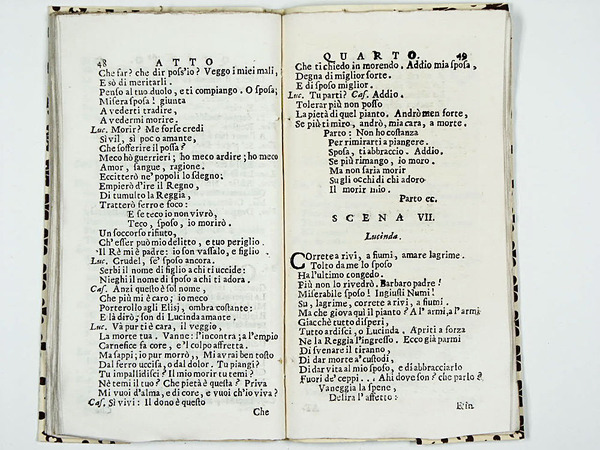 48 ATTO
Che far? che dir poss'io? Veggo i miei mali,
E sò di meritarli.
Penso al tuo duolo, e ti compiango. O sposa;
Misera sposa! giunta
A vederti tradire,
A vedermi morire.
Luc. Morir? Me forse credi
Sì vil, sì poco amante,
Che sofferire il possa?
Meco hò guerrieri; ho meco ardire; ho meco
Amor, sangue, ragione.
Ecciterò ne' popoli lo sdegno:
Empierò d'ire il Regno,
Di tumulto la Reggia,
Tratterò ferro e foco:
E se teco io non vivrò,
Teco, sposo, io morirò.
Un soccorso rifiuto,
Ch'esser può mio delitto, e tuo periglio.
Il Rè mi è padre: io son vassalo, e figlio.
Luc. Crudel, se' sposo ancora.
Serbi il nome di figlio a chi ti uccide:
Nieghi il nome di sposo a chi ti adora.
Cas. Anzi questo è sol nome,
Che più mi è caro; io meco
Porterollo agli Elisj, ombra costante:
E là dirò; son di Lucinda amante.
Luc. Và pur ti è cara, il veggio,
La morte tua. Vanne: l'incontra; a l'empio
Carnefice fa core, e 'l colpo affretta.
Ma sappi; io pur morrò,, Mi avrai ben tosto
Dal ferro uccisa, o dal dolor. Tu piangi?
Tu impallidisci? Il mio morir tu temi?
Nè temi il tuo? Che pietà è questa? Priva
Mi vuoi d'alma, e di core, e vuoi ch'io viva?
Cas. Sì vivi: Il dono è questo
Che
QUARTO. 49
Che ti chiedo in morendo. Addio mia sposa,
Degna di miglior sorte.
E di sposo miglior.
Luc. Tu parti? Cas. Addio.
Tolerar più non posso
La pietà di quel pianto. Andrò men forte,
Se più ti miro, andrò, mia cara, a morte.
Parto: Non ho costanza
Per rimirarti a piangere.
Sposa, ti abbraccio. Addio.
Se più rimango, io moro.
Ma non saria morir
Sugli occhi di chi adoro
Il morir mio.
Parto ec.
SCENA VII.
Lucinda.
COrrete a rivi, a fiumi, amare lagrime.
Tolto da me lo sposo
Ha l'ultimo congedo.
Più non lo rivedrò. Barbaro padre!
Miserabile sposo! Ingiusti Numi!
Su, lagrime, correte a rivi, a fiumi.
Ma che giova qui il pianto? A l' armi, a l' armi
Giacchè tutto disperi,
Tutto ardisci, o Lucinda. Apriti a forza
Ne la Reggia l'ingresso. Ecco già parmi
Di svenare il tiranno,
Di dar morte a' custodi,
Di dar vita al mio sposo, e di abbracciarlo
Fuori de' ceppi... Ahi dove son? che parlo?
Vaneggia la spene,
Delira l'affetto:
E in